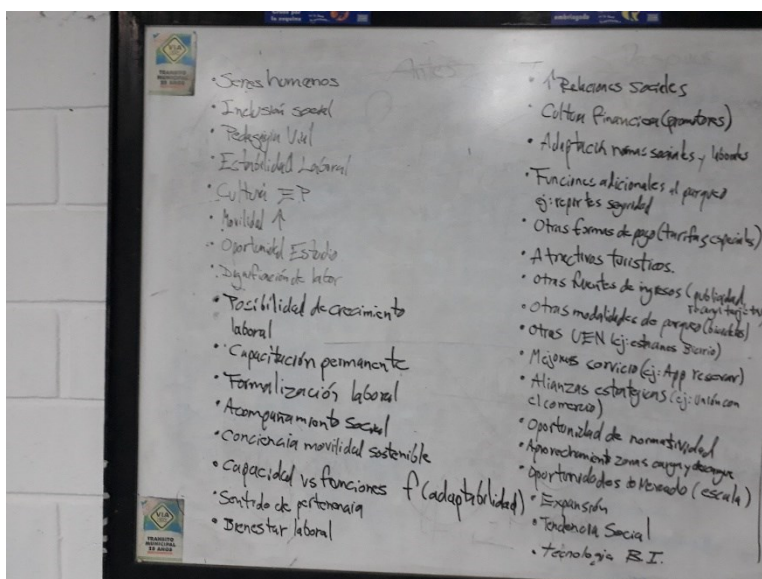 la esquina
embriagado
VIA
TRANSITO
MUNICIPAL
25 AÑOS
Antes
• Seres humanos
• Inclusión social
• Pedagogía Vial
• Estabilidad Laboral
• Cultura EP
• Movilidad ↑
• Oportunidad Estudio
• Dignificación de labor
• Posibilidad de crecimiento
laboral
• Capacitación permanente
• Formalización laboral
• Acompañamiento social
• Conciencia movilidad sostenible
• Capacidad vs funciones f(adaptabilidad)
• Sentido de pertenencia
• Bienestar laboral
VIA
TRANSITO
MUNICIPAL
25 AÑOS
Despues
• ↑ Relaciones sociales
• Cultura financiera (promotores)
• Adaptación normas sociales y laborales
• Funciones adicionales al parqueo
ej: reportes seguridad
• Otras formas de pago (tarifas especiales)
• Atractivos turísticos.
• Otras fuentes de ingresos (publicidad,
• Otras modalidades de parqueo
• Otras UEN (ej:
• Mejores servicio (ej: App reservar)
• Alianzas estratégicas (ej: Unión con
el comercio)
• Oportunidad de normatividad
• Aprovechamiento zonas cargue y descargue
• Oportunidades de Mercado (escala)
• Expansión
• Tendencia Social
• tecnología B.I.